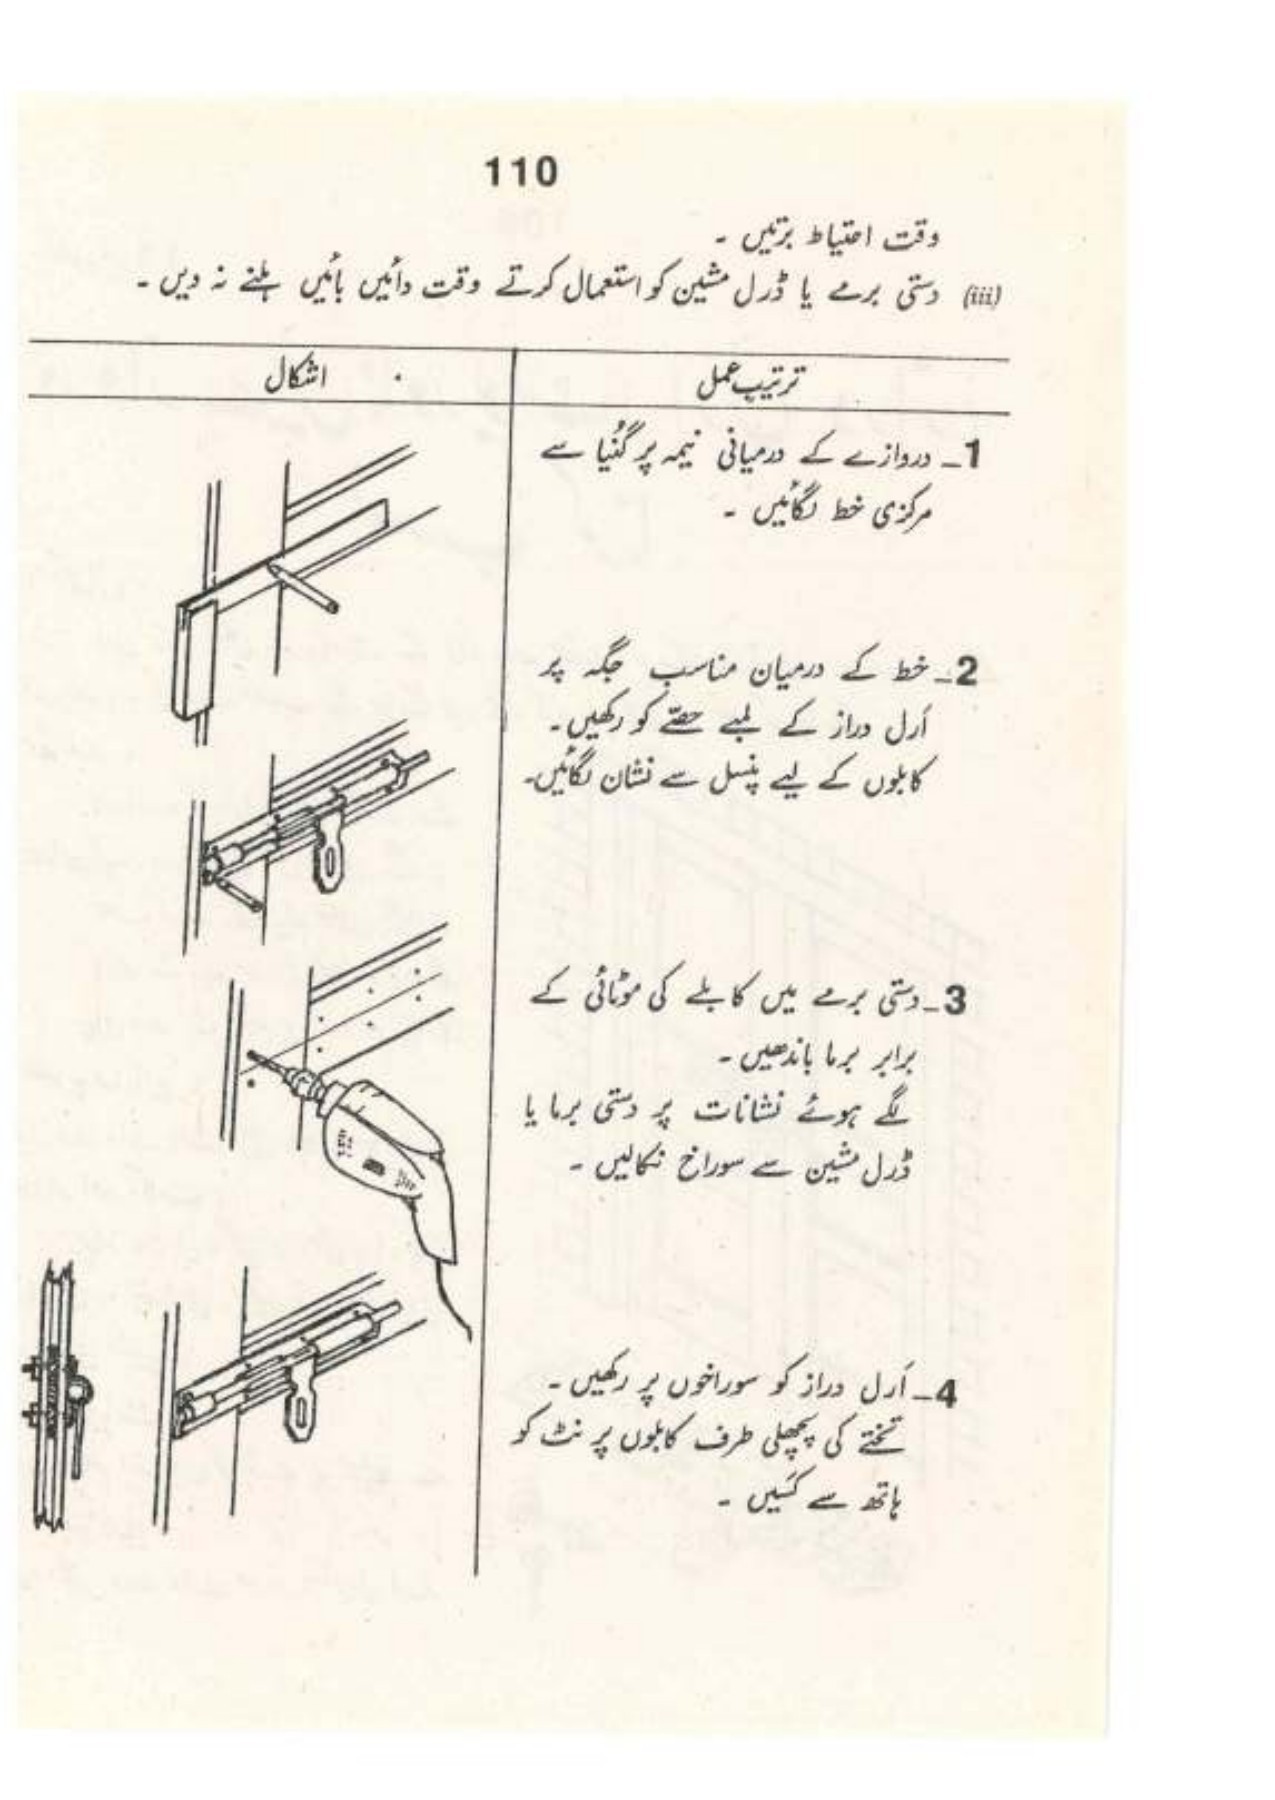 110
وقت احتیاط برتیں ۔
(iii) دستی برمے یا ڈرل مشین کو استعمال کرتے وقت دائیں بائیں ہلنے نہ دیں ۔
ترتیبِ عمل
اشکال
1ـ دروازے کے درمیانی نیمہ پر گُنیا سے
مرکزی خط لگائیں ۔
2ـ خط کے درمیان مناسب جگہ پر
اَرل دراز کے لمبے حصّے کو رکھیں ۔
کابلوں کے لیے پنسل سے نشان لگائیں ۔
3ـ دستی برمے میں کابلے کی موٹائی کے
برابر برما باندھیں ۔
لگے ہوئے نشانات پر دستی برما یا
ڈرل مشین سے سوراخ نکالیں ۔
4ـ اَرل دراز کو سوراخوں پر رکھیں ۔
تختے کی پچھلی طرف کابلوں پر نٹ کو
ہاتھ سے کَسیں ۔